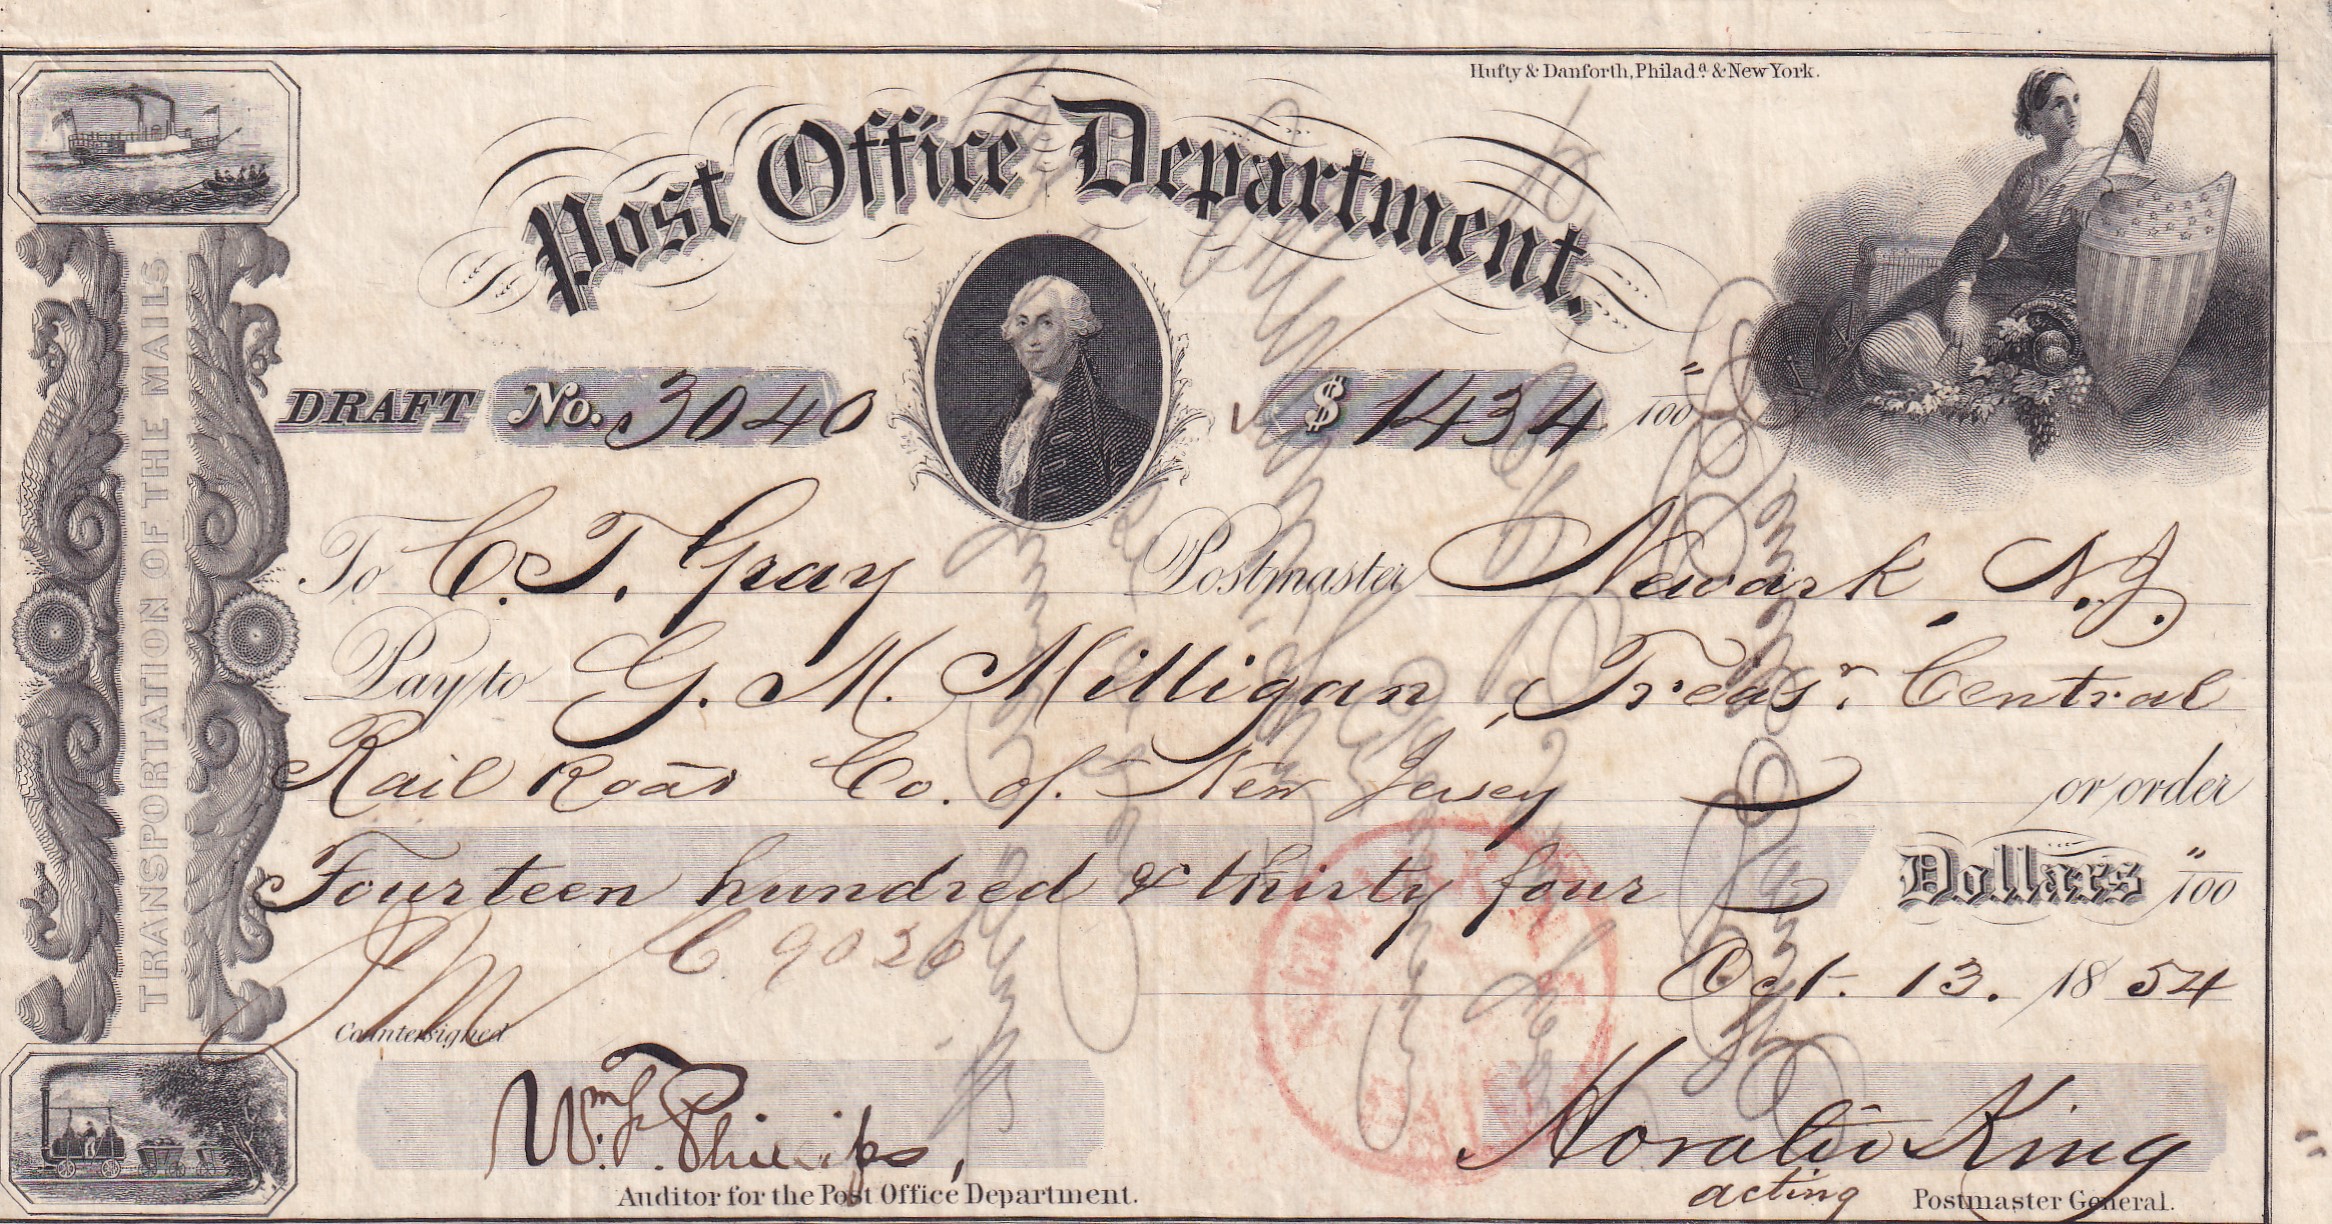 Hufty & Danforth, Philad.ª & New York.
Post Office Department.
TRANSPORTATION OF THE MAILS
DRAFT No. 3040 $ 1434 "/100
To C. T. Gray Postmaster Newark, N.J.
Pay to G. M. Milligan, Treasr. Central
Rail Road Co. of New Jersey or order
Fourteen hundred & thirty four Dollars "/100
C. 9020
Oct. 13. 1854
Countersigned
Wm. F. Phillips, Horatio King
Auditor for the Post Office Department. acting Postmaster General.